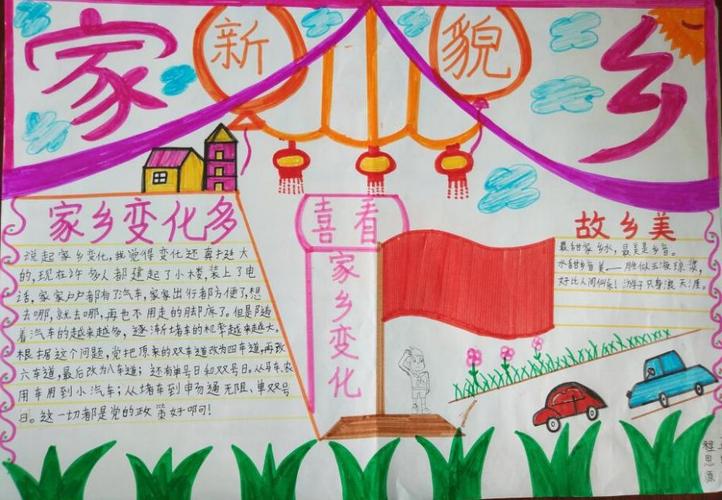 家乡
新貌
家乡变化多
说起家乡变化,我觉得变化还真挺大
的,现在许多人都建起了小楼,装上了电
话,家家户户都有了汽车,家家出行都方便了,想
去哪,就去哪,再也不用走的脚疼了。但是随
着汽车的越来越多,逐渐堵车的机率越来越大。
根据这个问题,党把原来的双车道改为四车道,再改
六车道,最后改为八车道;还有单号日和双号日。从马车、农
用车用到小汽车;从堵车到申扬通无阻、单双号
日。这一切都是党的政策好啊!
喜看
家乡变化
故乡美
最甜家乡水,最美是乡音。
水甜乡音美——胜似玉液琼浆,
好比人间仙乐!游子只身浪天涯。
程思源